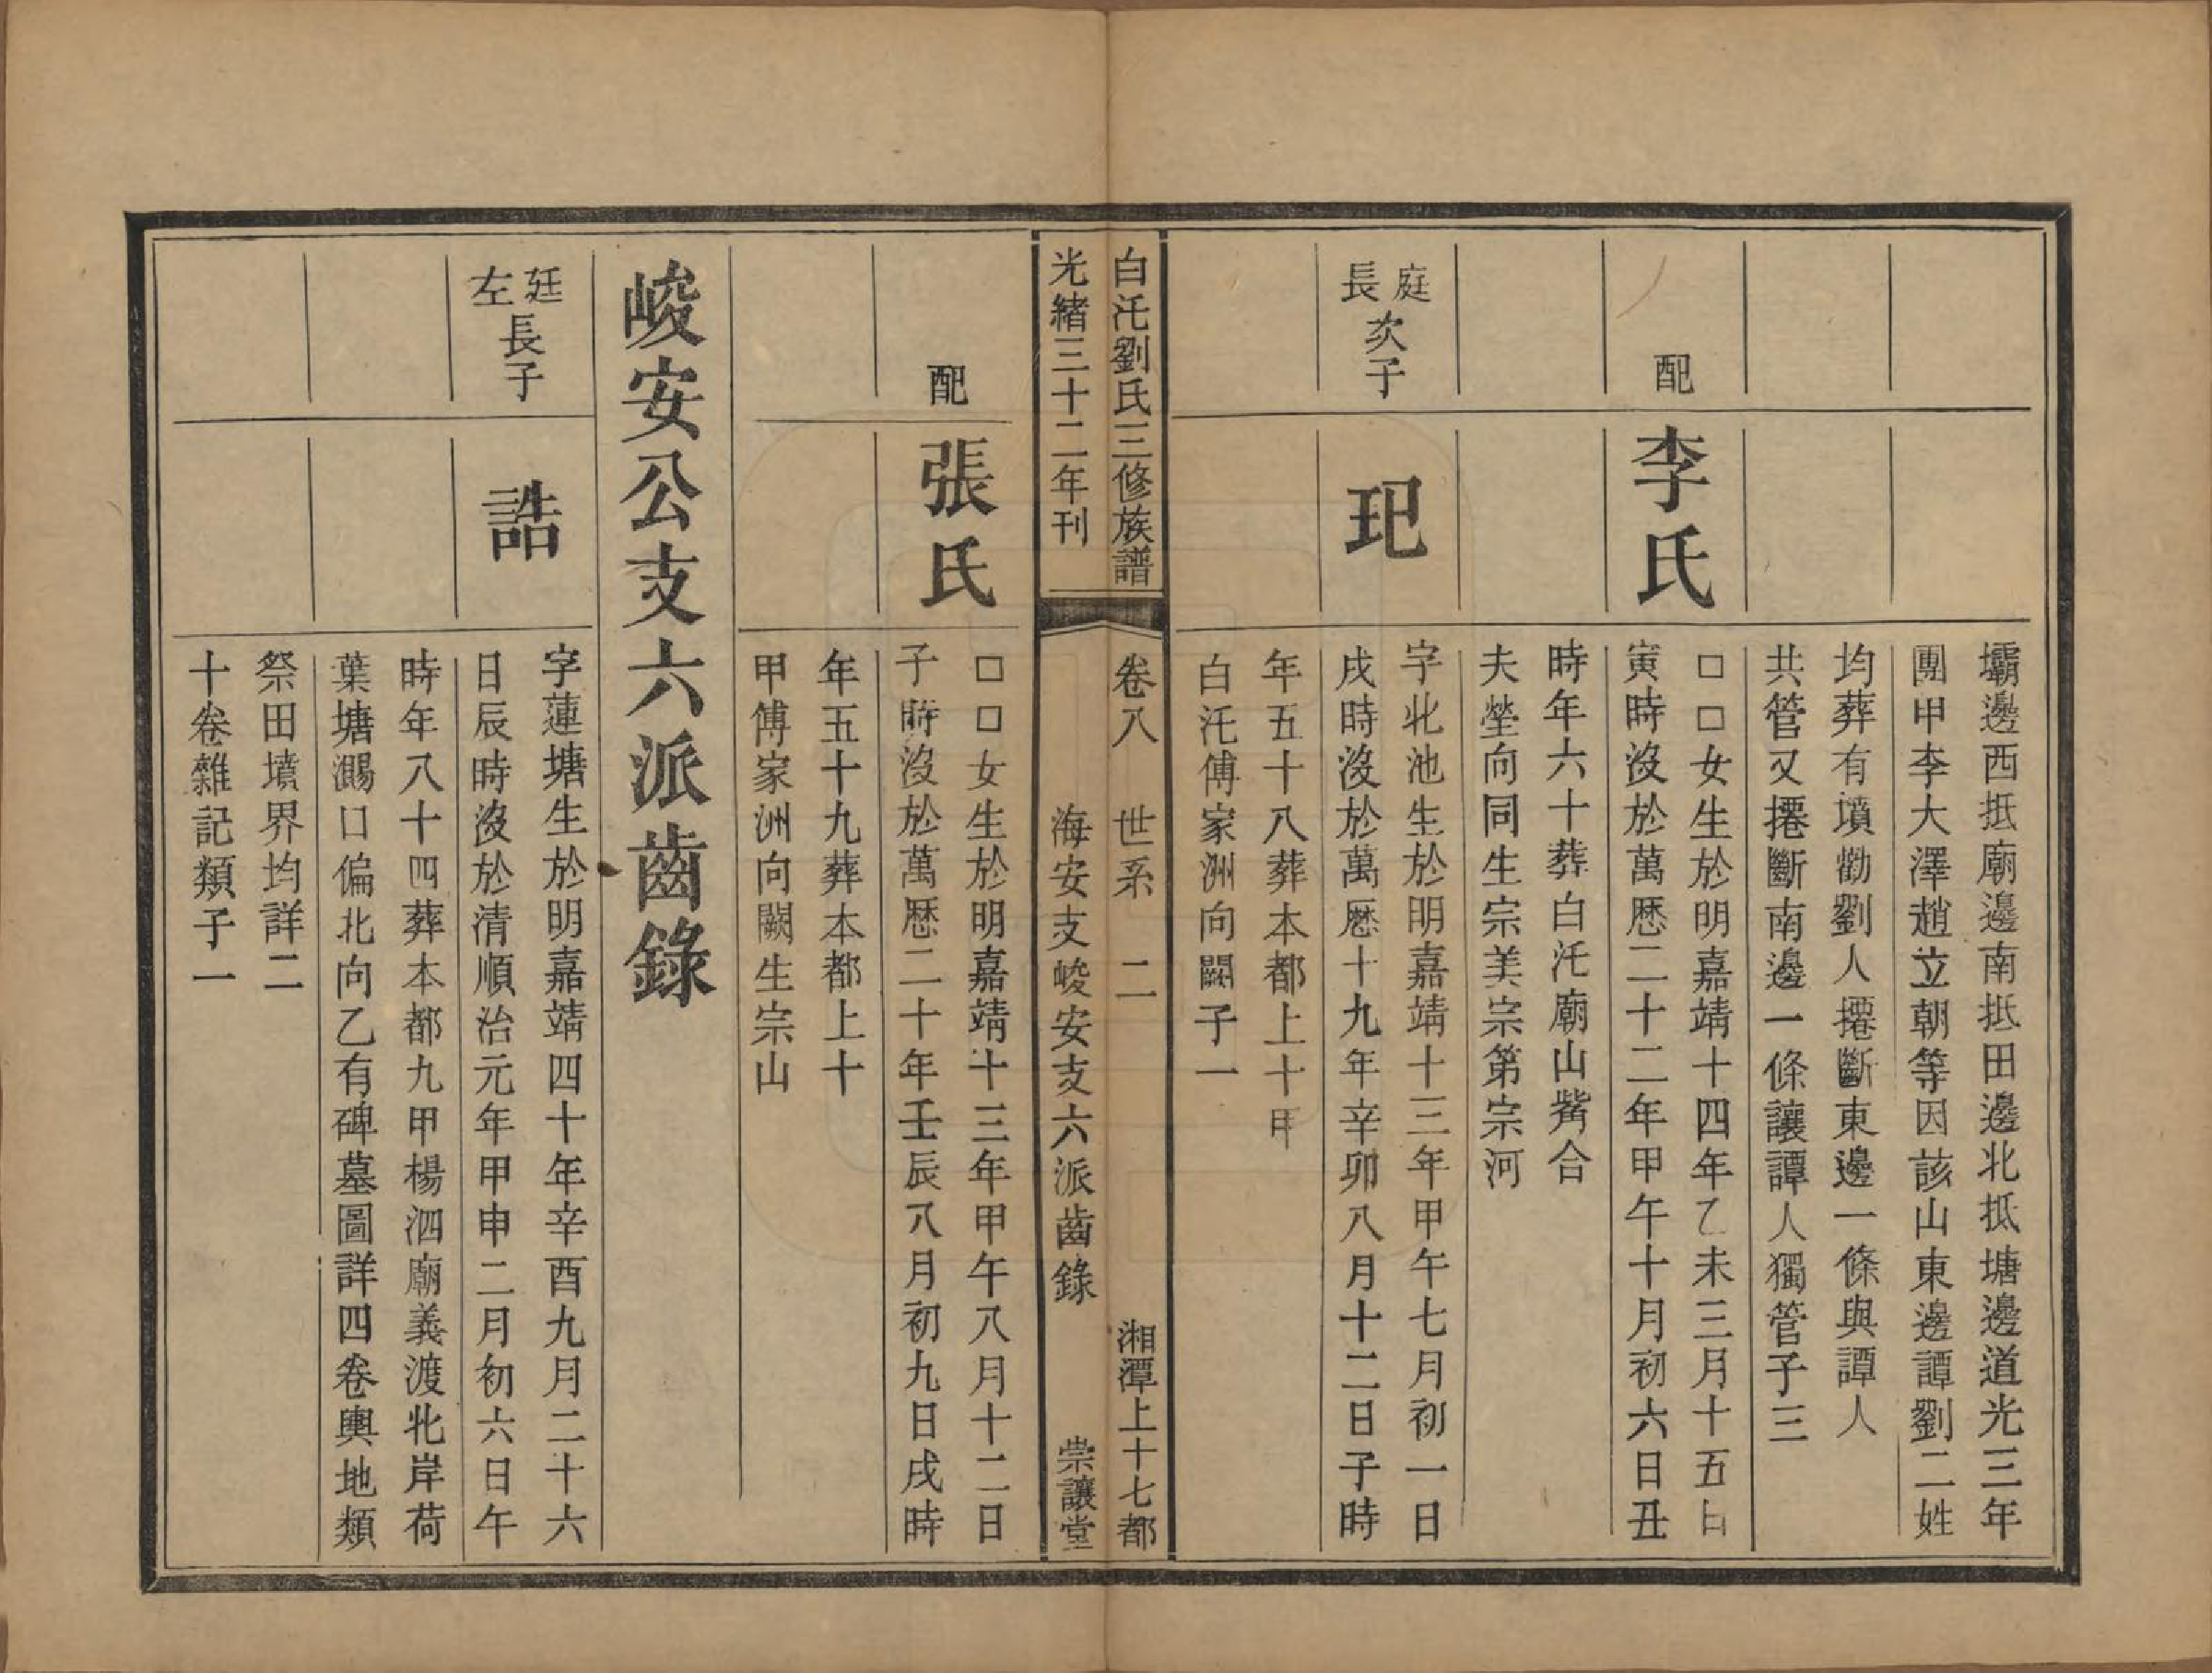 壩邊西抵廟邊南抵田邊北抵塘邊道光三年
團甲李大澤趙立朝等因該山東邊譚劉二姓
均葬有墳勸劉人攇斷東邊一條與譚人
共管又攇斷南邊一條讓譚人獨管子三
配
李氏
□□女生於明嘉靖十四年乙未三月十五日
寅時沒於萬歷二十二年甲午十月初六日丑
時年六十葬白汑廟山觜合
夫塋向同生宗美宗第宗河
庭長次子
玘
字北池生於明嘉靖十三年甲午七月初一日
戌時沒於萬歷十九年辛卯八月十二日子時
年五十八葬本都上十甲
白汑傅家洲向闕子一
白汑劉氏三修族譜
卷八 世系 二
湘潭上十七都
光緒三十二年刊
海安支峻安支六派齒錄
崇讓堂
配
張氏
□□女生於明嘉靖十三年甲午八月十二日
子時沒於萬歷二十年壬辰八月初九日戌時
年五十九葬本都上十
甲傅家洲向闕生宗山
峻安公支六派齒錄
廷左長子
誥
字蓮塘生於明嘉靖四十年辛酉九月二十六
日辰時沒於清順治元年甲申二月初六日午
時年八十四葬本都九甲楊泗廟義渡北岸荷
葉塘漡口偏北向乙有碑墓圖詳四卷輿地類
祭田墳界均詳二
十卷雜記類子一